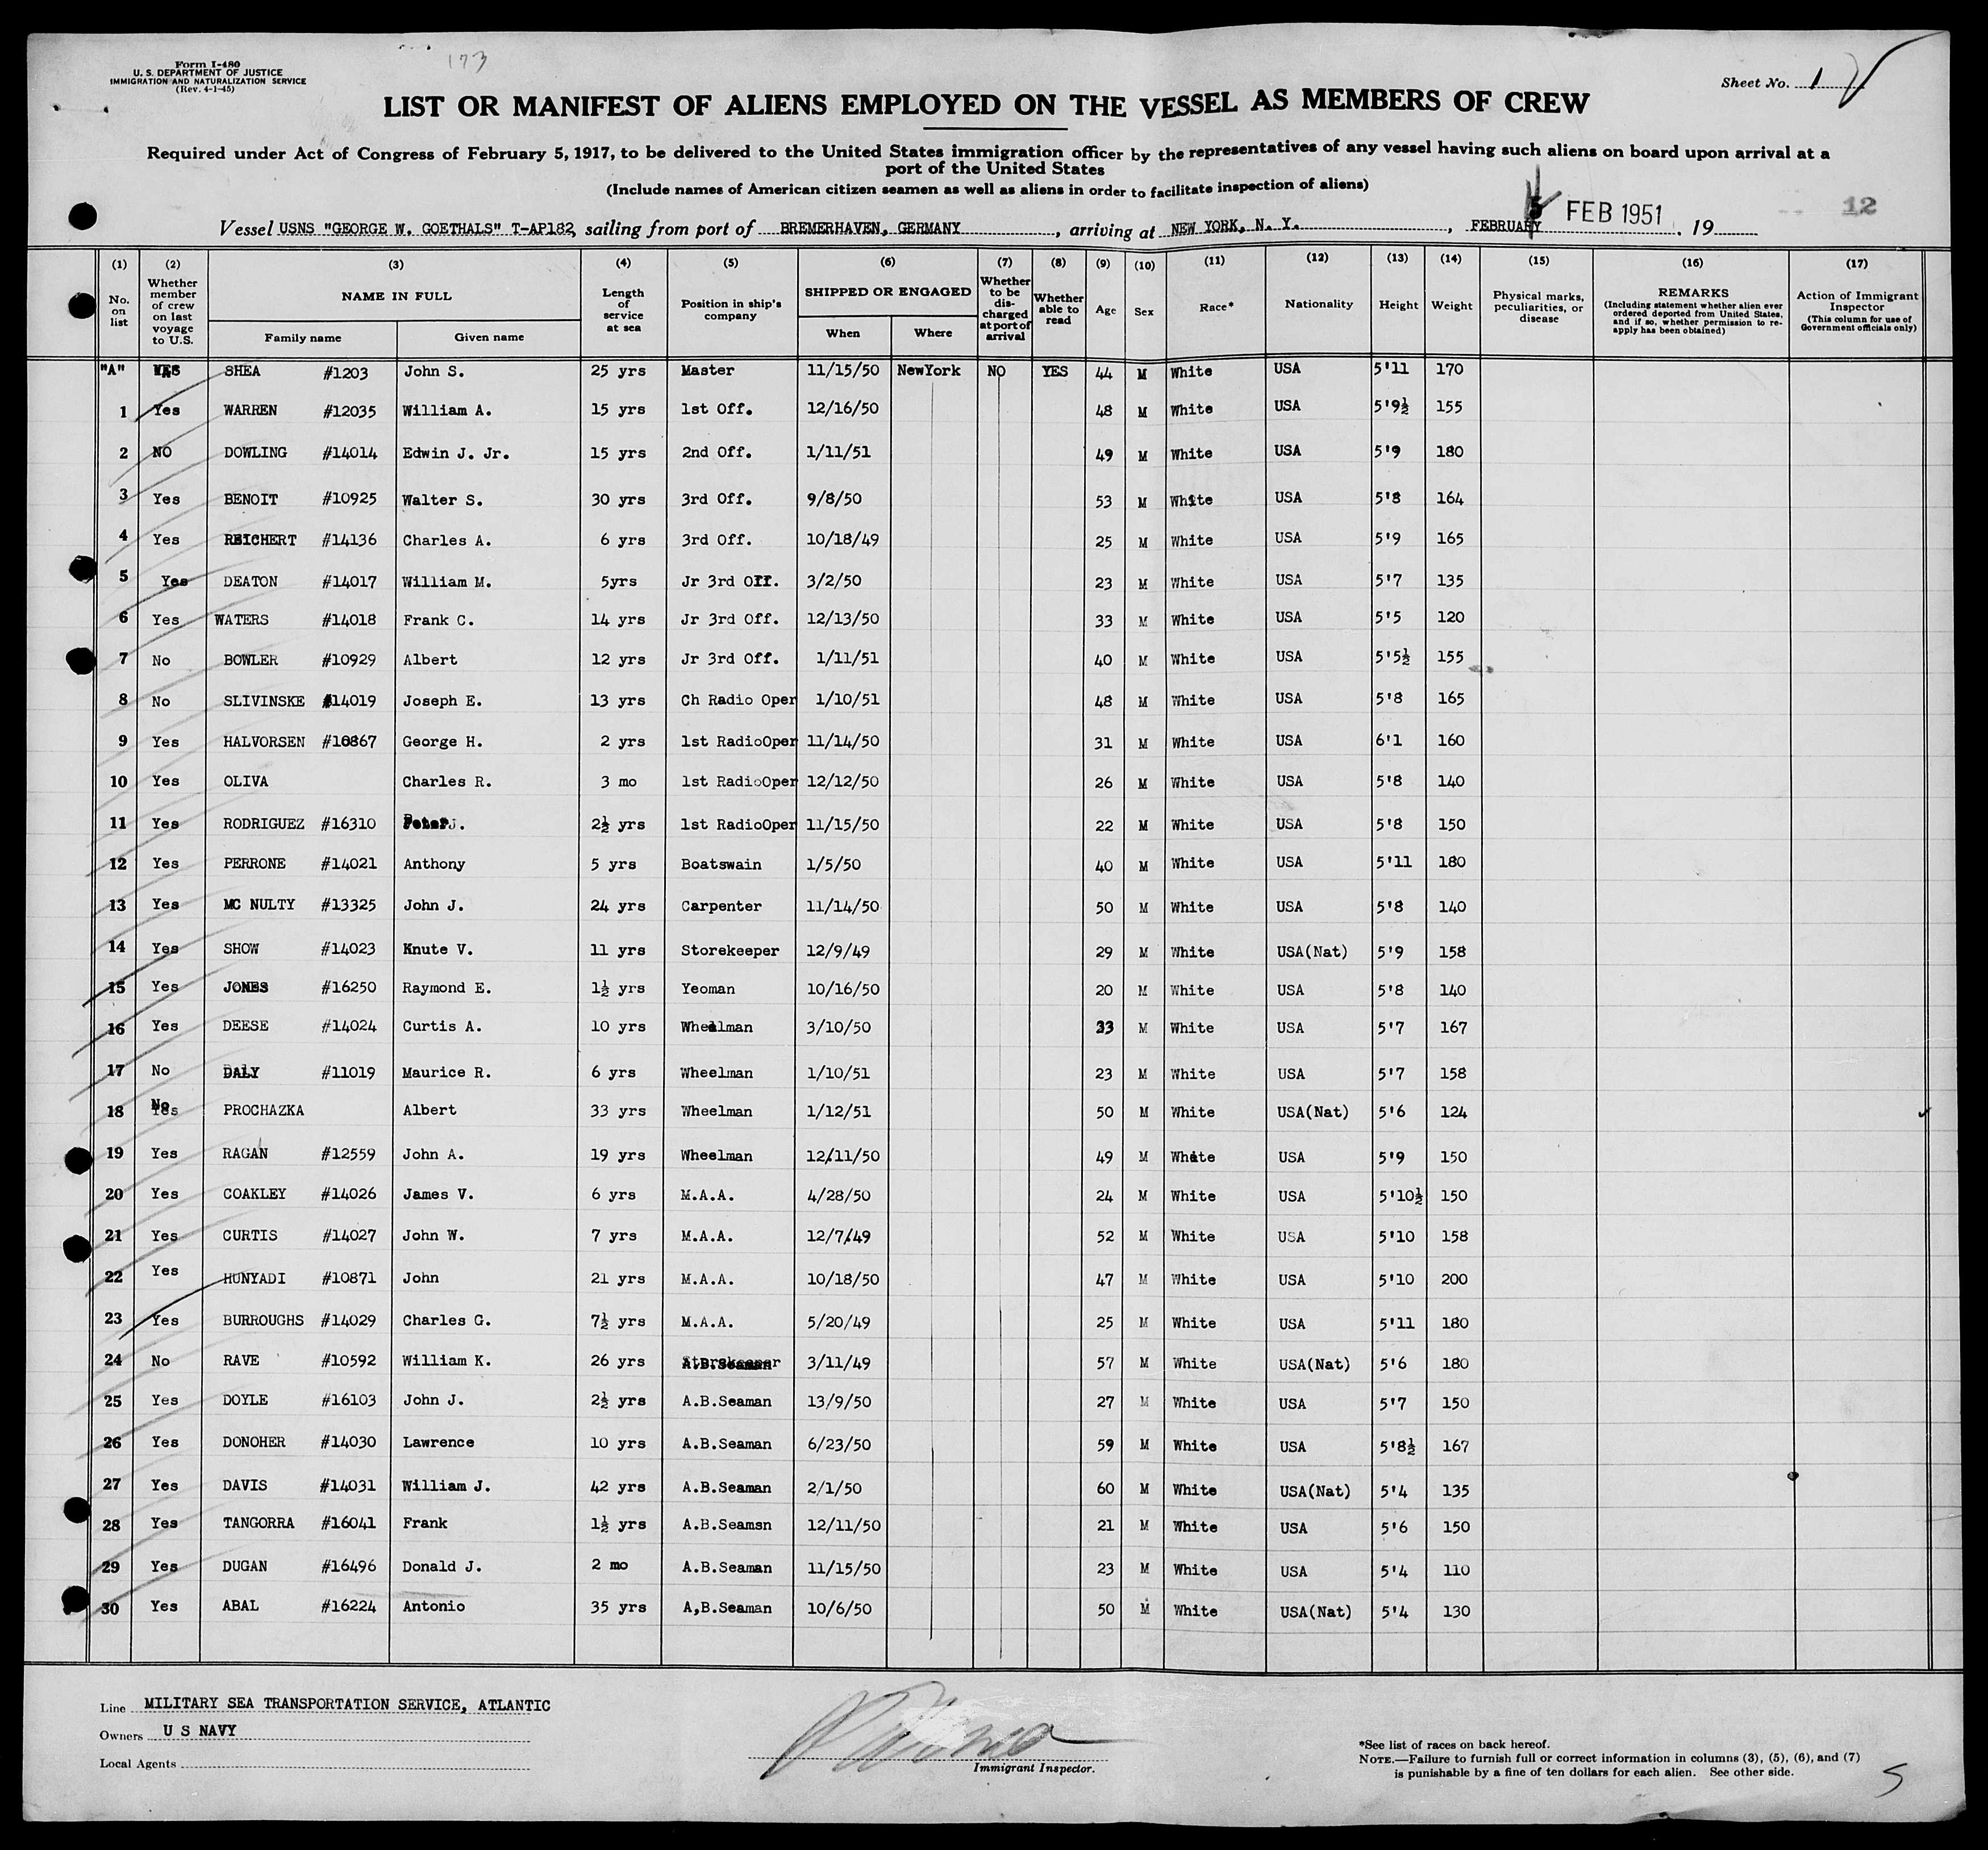 Form I-480
U. S. DEPARTMENT OF JUSTICE
IMMIGRATION AND NATURALIZATION SERVICE
(Rev. 4-1-45)
173
Sheet No. 1
LIST OR MANIFEST OF ALIENS EMPLOYED ON THE VESSEL AS MEMBERS OF CREW
Required under Act of Congress of February 5, 1917, to be delivered to the United States immigration officer by the representatives of any vessel having such aliens on board upon arrival at a
port of the United States
(Include names of American citizen seamen as well as aliens in order to facilitate inspection of aliens)
12
Vessel USNS "GEORGE W. GOETHALS" T-AP182, sailing from port of BREMERHAVEN, GERMANY, arriving at NEW YORK, N. Y., FEBRUARY 5 FEB 1951, 19
(1) (2) (3) (4) (5) (6) (7) (8) (9) (10) (11) (12) (13) (14) (15) (16) (17)
No. on list Whether member of crew on last voyage to U.S. NAME IN FULL Family name Given name Length of service at sea Position in ship's company SHIPPED OR ENGAGED When Where Whether to be discharged at port of arrival Whether able to read Age Sex Race* Nationality Height Weight Physical marks, peculiarities, or disease REMARKS (Including statement whether alien ever ordered deported from United States, and if so, whether permission to reapply has been obtained) Action of Immigrant Inspector (This column for use of Government officials only)
"A" YES SHEA #1203 John S. 25 yrs Master 11/15/50 NewYork NO YES 44 M White USA 5'11 170
1 Yes WARREN #12035 William A. 15 yrs 1st Off. 12/16/50 48 M White USA 5'9½ 155
2 NO DOWLING #14014 Edwin J. Jr. 15 yrs 2nd Off. 1/11/51 49 M White USA 5'9 180
3 Yes BENOIT #10925 Walter S. 30 yrs 3rd Off. 9/8/50 53 M White USA 5'8 164
4 Yes REICHERT #14136 Charles A. 6 yrs 3rd Off. 10/18/49 25 M White USA 5'9 165
5 Yes DEATON #14017 William M. 5yrs Jr 3rd Off. 3/2/50 23 M White USA 5'7 135
6 Yes WATERS #14018 Frank C. 14 yrs Jr 3rd Off. 12/13/50 33 M White USA 5'5 120
7 No BOWLER #10929 Albert 12 yrs Jr 3rd Off. 1/11/51 40 M White USA 5'5½ 155
8 No SLIVINSKE #14019 Joseph E. 13 yrs Ch Radio Oper 1/10/51 48 M White USA 5'8 165
9 Yes HALVORSEN #10867 George H. 2 yrs 1st RadioOper 11/14/50 31 M White USA 6'1 160
10 Yes OLIVA Charles R. 3 mo 1st RadioOper 12/12/50 26 M White USA 5'8 140
11 Yes RODRIGUEZ #16310 Peter J. 2½ yrs 1st RadioOper 11/15/50 22 M White USA 5'8 150
12 Yes PERRONE #14021 Anthony 5 yrs Boatswain 1/5/50 40 M White USA 5'11 180
13 Yes MC NULTY #13325 John J. 24 yrs Carpenter 11/14/50 50 M White USA 5'8 140
14 Yes SHOW #14023 Knute V. 11 yrs Storekeeper 12/9/49 29 M White USA(Nat) 5'9 158
15 Yes JONES #16250 Raymond E. 1½ yrs Yeoman 10/16/50 20 M White USA 5'8 140
16 Yes DEESE #14024 Curtis A. 10 yrs Wheelman 3/10/50 33 M White USA 5'7 167
17 No DALY #11019 Maurice R. 6 yrs Wheelman 1/10/51 23 M White USA 5'7 158
18 No Yes PROCHAZKA Albert 33 yrs Wheelman 1/12/51 50 M White USA(Nat) 5'6 124
19 Yes RAGAN #12559 John A. 19 yrs Wheelman 12/11/50 49 M White USA 5'9 150
20 Yes COAKLEY #14026 James V. 6 yrs M.A.A. 4/28/50 24 M White USA 5'10½ 150
21 Yes CURTIS #14027 John W. 7 yrs M.A.A. 12/7/49 52 M White USA 5'10 158
22 Yes HUNYADI #10871 John 21 yrs M.A.A. 10/18/50 47 M White USA 5'10 200
23 Yes BURROUGHS #14029 Charles G. 7½ yrs M.A.A. 5/20/49 25 M White USA 5'11 180
24 No RAVE #10592 William K. 26 yrs 3/11/49 57 M White USA(Nat) 5'6 180
25 Yes DOYLE #16103 John J. 2½ yrs A.B.Seaman 13/9/50 27 M White USA 5'7 150
26 Yes DONOHER #14030 Lawrence 10 yrs A.B.Seaman 6/23/50 59 M White USA 5'8½ 167
27 Yes DAVIS #14031 William J. 42 yrs A.B.Seaman 2/1/50 60 M White USA(Nat) 5'4 135
28 Yes TANGORRA #16041 Frank 1½ yrs A.B.Seamsn 12/11/50 21 M White USA 5'6 150
29 Yes DUGAN #16496 Donald J. 2 mo A.B.Seaman 11/15/50 23 M White USA 5'4 110
30 Yes ABAL #16224 Antonio 35 yrs A,B.Seaman 10/6/50 50 M White USA(Nat) 5'4 130
Line MILITARY SEA TRANSPORTATION SERVICE, ATLANTIC
Owners U S NAVY
Local Agents
Immigrant Inspector.
*See list of races on back hereof.
NOTE.—Failure to furnish full or correct information in columns (3), (5), (6), and (7)
is punishable by a fine of ten dollars for each alien. See other side.
5